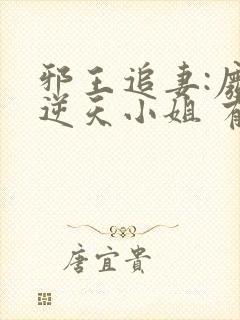 邪王追妻:廢
逆天小姐
唐宜貴